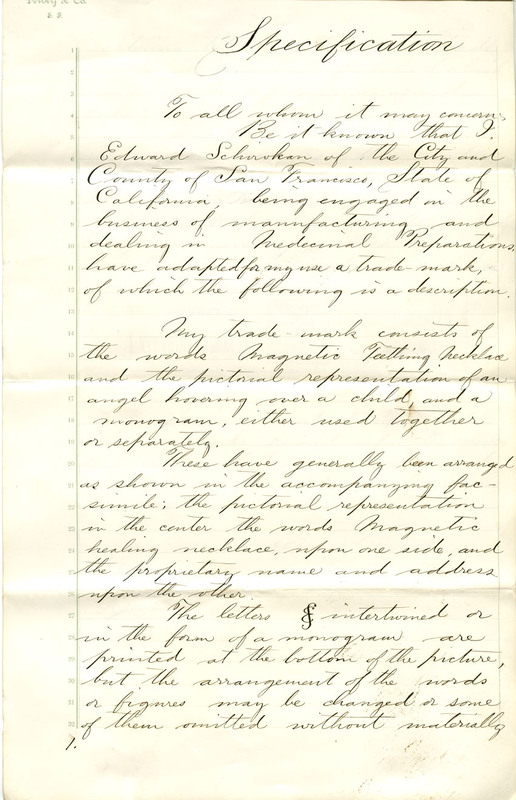 Specification
To all whom it may concern,
Be it known that I.
Edward of the City and
County of San Francisco, State of
California, being engaged in the
business of manufacturing and
dealing in Medecinal Preparations,
have adapted for my use a trade-mark,
of which the following is a description.
My trade-mark consists of
the words Magnetic Teething necklace
and the pictorial representation of an
angel hovering over a child, and a
monogram, either used together
or separately.
These have generally been arranged
as shown in the accompanying fac-
simile; the pictorial representation
in the center the words Magnetic
healing necklace, upon one side, and
the proprietary name and address
upon the other.
The letters intertwined or
in the form of a monogram are
printed at the bottom of the picture,
but the arrangement of the words
or figures may be changed or some
of them omitted without materially
1.